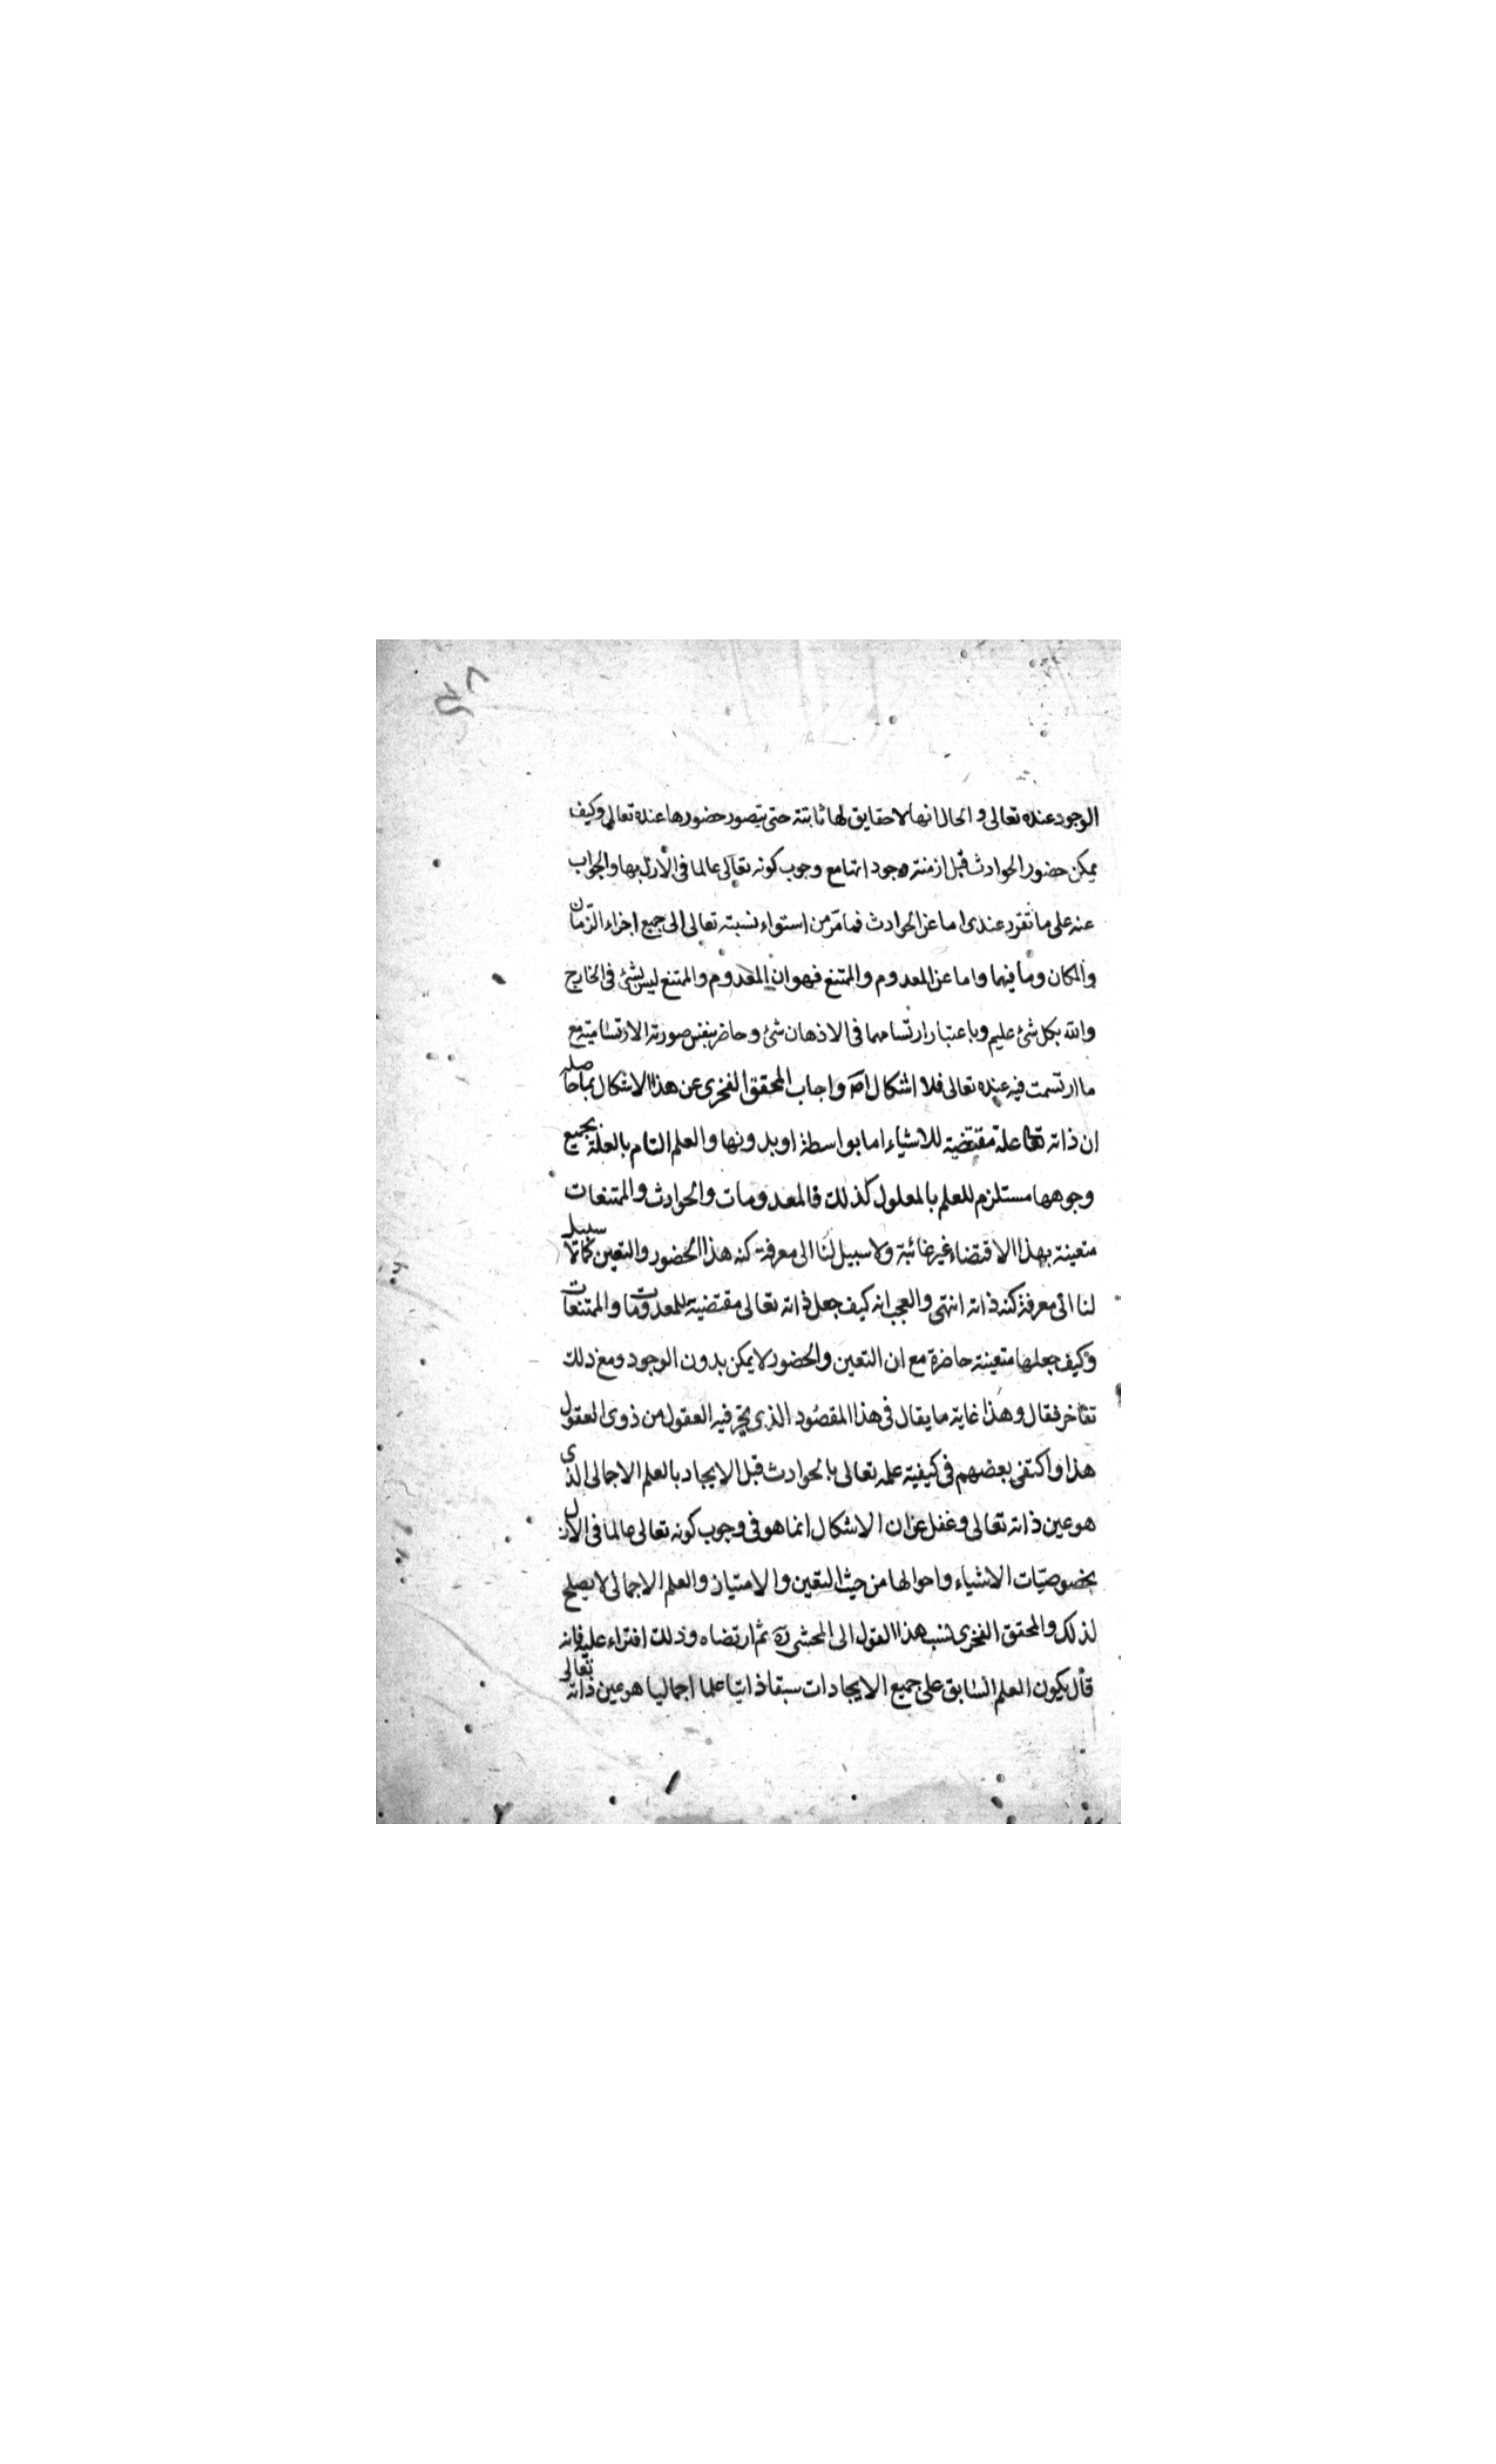 الوجود عنده تعالى و الحال انها لا حقايق لها ثابتة حتى يتصور حضورها عنده تعالى وكيف
يمكن حضور الحوادث قبل ازمنة وجوداتها مع وجوب كونه تعالى عالما فى الازل بها والجواب
عنه على ما تقرر عندى اما عن الحوادث فما مرّ من استواء نسبته تعالى الى جميع اجزاء الزّمان
والمكان وما فيها واما عن المعدوم والممتنع فهو ان المعدوم والممتنع ليس بشئ فى الخارج
والله بكل شئ عليم وباعتبار ارتسامهما فى الاذهان شئ وحاضر بنفس صورته الارتسامية مع
ما ارتسمت فيه عنده تعالى فلا اشكال اصلا واجاب المحقق الفخرى عن هذا الاشكال بما حاصله
ان ذاته تعالى علة مقتضية للاشياء اما بواسطة او بدونها والعلم التام بالعلة بجميع
وجوهها مستلزم للعلم بالمعلول كذلك فالمعدومات والحوادث والممتنعات
متعينة بهذا الاقتضاء غير غائبة ولا سبيل لنا الى معرفة كنه هذا الحضور والتعين كما لا سبيل
لنا الى معرفة كنه ذاته انتهى والعجب انه كيف جعل ذاته تعالى مقتضية للمعدومات والممتنعات
وكيف جعلها متعينة حاضرة مع ان التعين والحضور لا يمكن بدون الوجود ومع ذلك
تفاخر فقال وهذا غاية ما يقال فى هذا المقصود الذى يتحير فيه العقول من ذوى العقول
هذا واكتفى بعضهم فى كيفية علمه تعالى بالحوادث قبل الايجاد بالعلم الاجمالى الذى
هو عين ذاته تعالى وغفل عن ان الاشكال انما هو فى وجوب كونه تعالى عالما فى الازل
بخصوصيّات الاشياء واحوالها من حيث التعين والامتياز والعلم الاجمالى لا يصلح
لذلك والمحقق الفخرى نسب هذا القول الى المحشى ره ثم ارتضاه وذلك افتراء عليه فانه
قال يكون العلم السّابق على جميع الايجادات سبقا ذاتيّا علما اجماليا هو عين ذاته تعالى